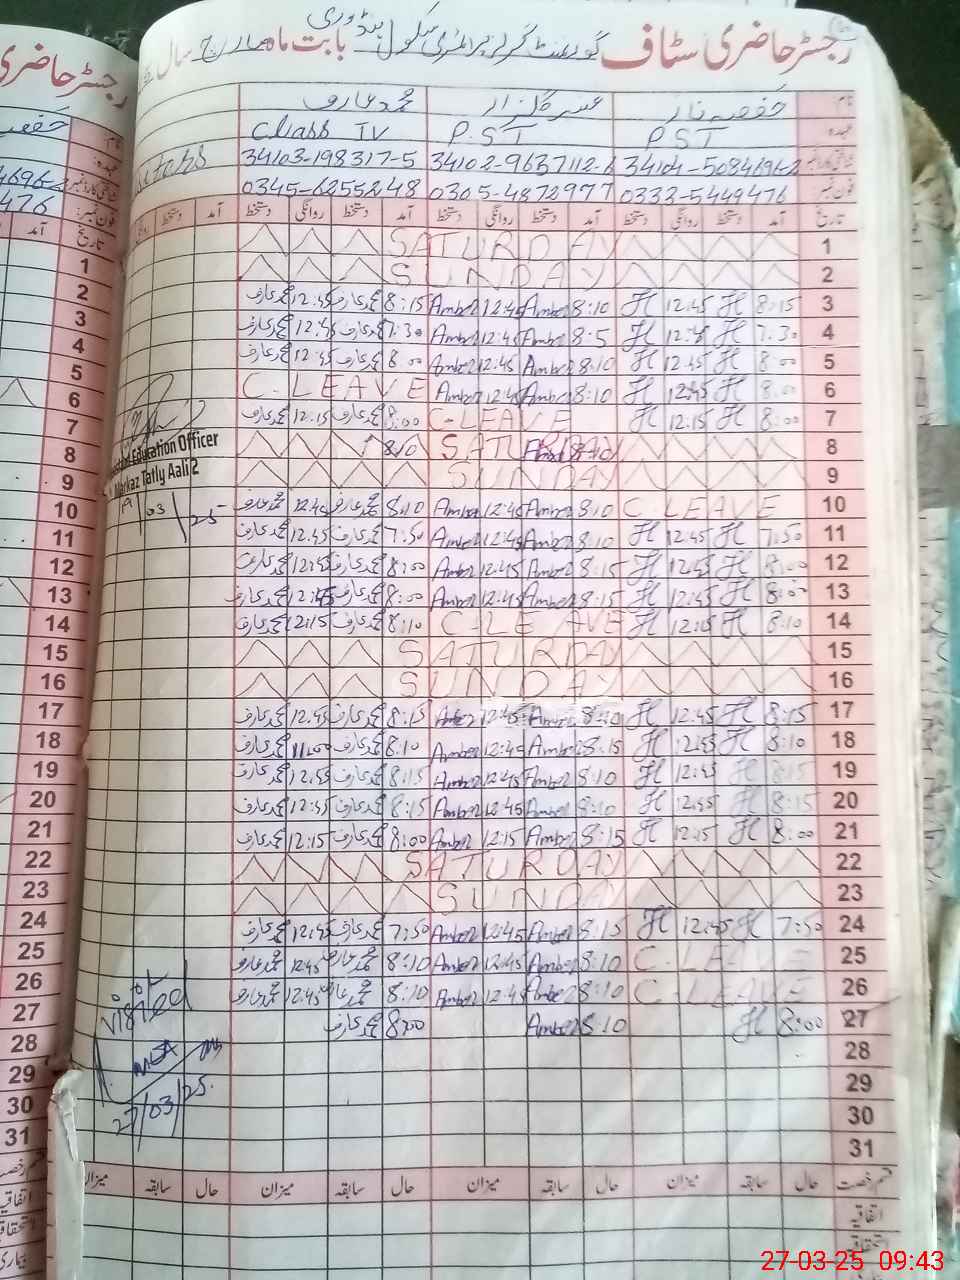 رجسٹر حاضری سٹاف گورنمنٹ گرلز پرائمری سکول پنڈوری بابت ماہ مارچ سال
رجسٹر حاضری
نام: حفصہ ناز عنبر گلزار محمد عارف
عہدہ P.S.T P.S.T Class IV
34104-5084696-2 34102-9637112-6 34103-198317-5
فون نمبر: 0333-5449476 0305-4872977 0345-6255248
تاریخ آمد دستخط روانگی دستخط آمد دستخط روانگی دستخط آمد دستخط روانگی دستخط آمد دستخط
1 SATURDAY
2 SUNDAY
3 8:15 H 12:45 H 8:10 Amber 12:45 Amber 8:15 محمد عارف 12:45 محمد عارف
4 7:30 H 12:45 H 8:5 Amber 12:45 Amber 7:30 محمد عارف 12:45 محمد عارف
5 8:00 H 12:45 H 8:10 Amber 12:45 Amber 8:00 محمد عارف 12:45 محمد عارف
6 8:00 H 12:45 H 8:10 Amber 12:45 Amber C.LEAVE
7 8:00 H 12:15 H C-LEAVE 8:00 محمد عارف 12:15 محمد عارف
8 SATURDAY 8:10 8:10
9 SUNDAY
10 C.LEAVE 8:10 Amber 12:45 Amber 8:10 محمد عارف 12:45 محمد عارف
11 7:50 H 12:45 H 8:10 Amber 12:45 Amber 7:50 محمد عارف 12:45 محمد عارف
12 8:00 H 12:45 H 8:15 Amber 12:45 Amber 8:00 محمد عارف 12:45 محمد عارف
13 8:00 H 12:45 H 8:15 Amber 12:45 Amber 8:00 محمد عارف 12:45 محمد عارف
14 8:10 H 12:15 H C-LEAVE 8:10 محمد عارف 12:15 محمد عارف
15 SATURDAY
16 SUNDAY
17 8:15 H 12:45 H 8:10 Amber 12:45 Amber 8:15 محمد عارف 12:45 محمد عارف
18 8:10 H 12:45 H 8:15 Amber 12:45 Amber 8:10 محمد عارف 11:00 محمد عارف
19 8:15 H 12:45 H 8:10 Amber 12:45 Amber 8:15 محمد عارف 12:45 محمد عارف
20 8:15 H 12:45 H 8:10 Amber 12:45 Amber 8:15 محمد عارف 12:45 محمد عارف
21 8:00 H 12:15 H 8:15 Amber 12:15 Amber 8:00 محمد عارف 12:15 محمد عارف
22 SATURDAY
23 SUNDAY
24 7:50 H 12:45 H 8:15 Amber 12:45 Amber 7:50 محمد عارف 12:45 محمد عارف
25 C.LEAVE 8:10 Amber 12:45 Amber 8:10 محمد عارف 12:45 محمد عارف
26 C.LEAVE 8:10 Amber 12:45 Amber 8:10 محمد عارف 12:45 محمد عارف
27 8:00 H 8:10 Amber 8:00 محمد عارف
28
29
30
31
قسم رخصت حال سابقہ میزان حال سابقہ میزان حال سابقہ میزان حال سابقہ میزان
اتفاقیہ
استحقاقی
Education Officer
Markaz Tatly Aali 2
19/03/25
visited
MEA
27/03/25
نام:
عہدہ:
فون نمبر:
تاریخ آمد
1
2
3
4
5
6
7
8
9
10
11
12
13
14
15
16
17
18
19
20
21
22
23
24
25
26
27
28
29
30
31
قسم رخصت
اتفاقیہ
استحقاقی
بیماری
27-03-25 09:43